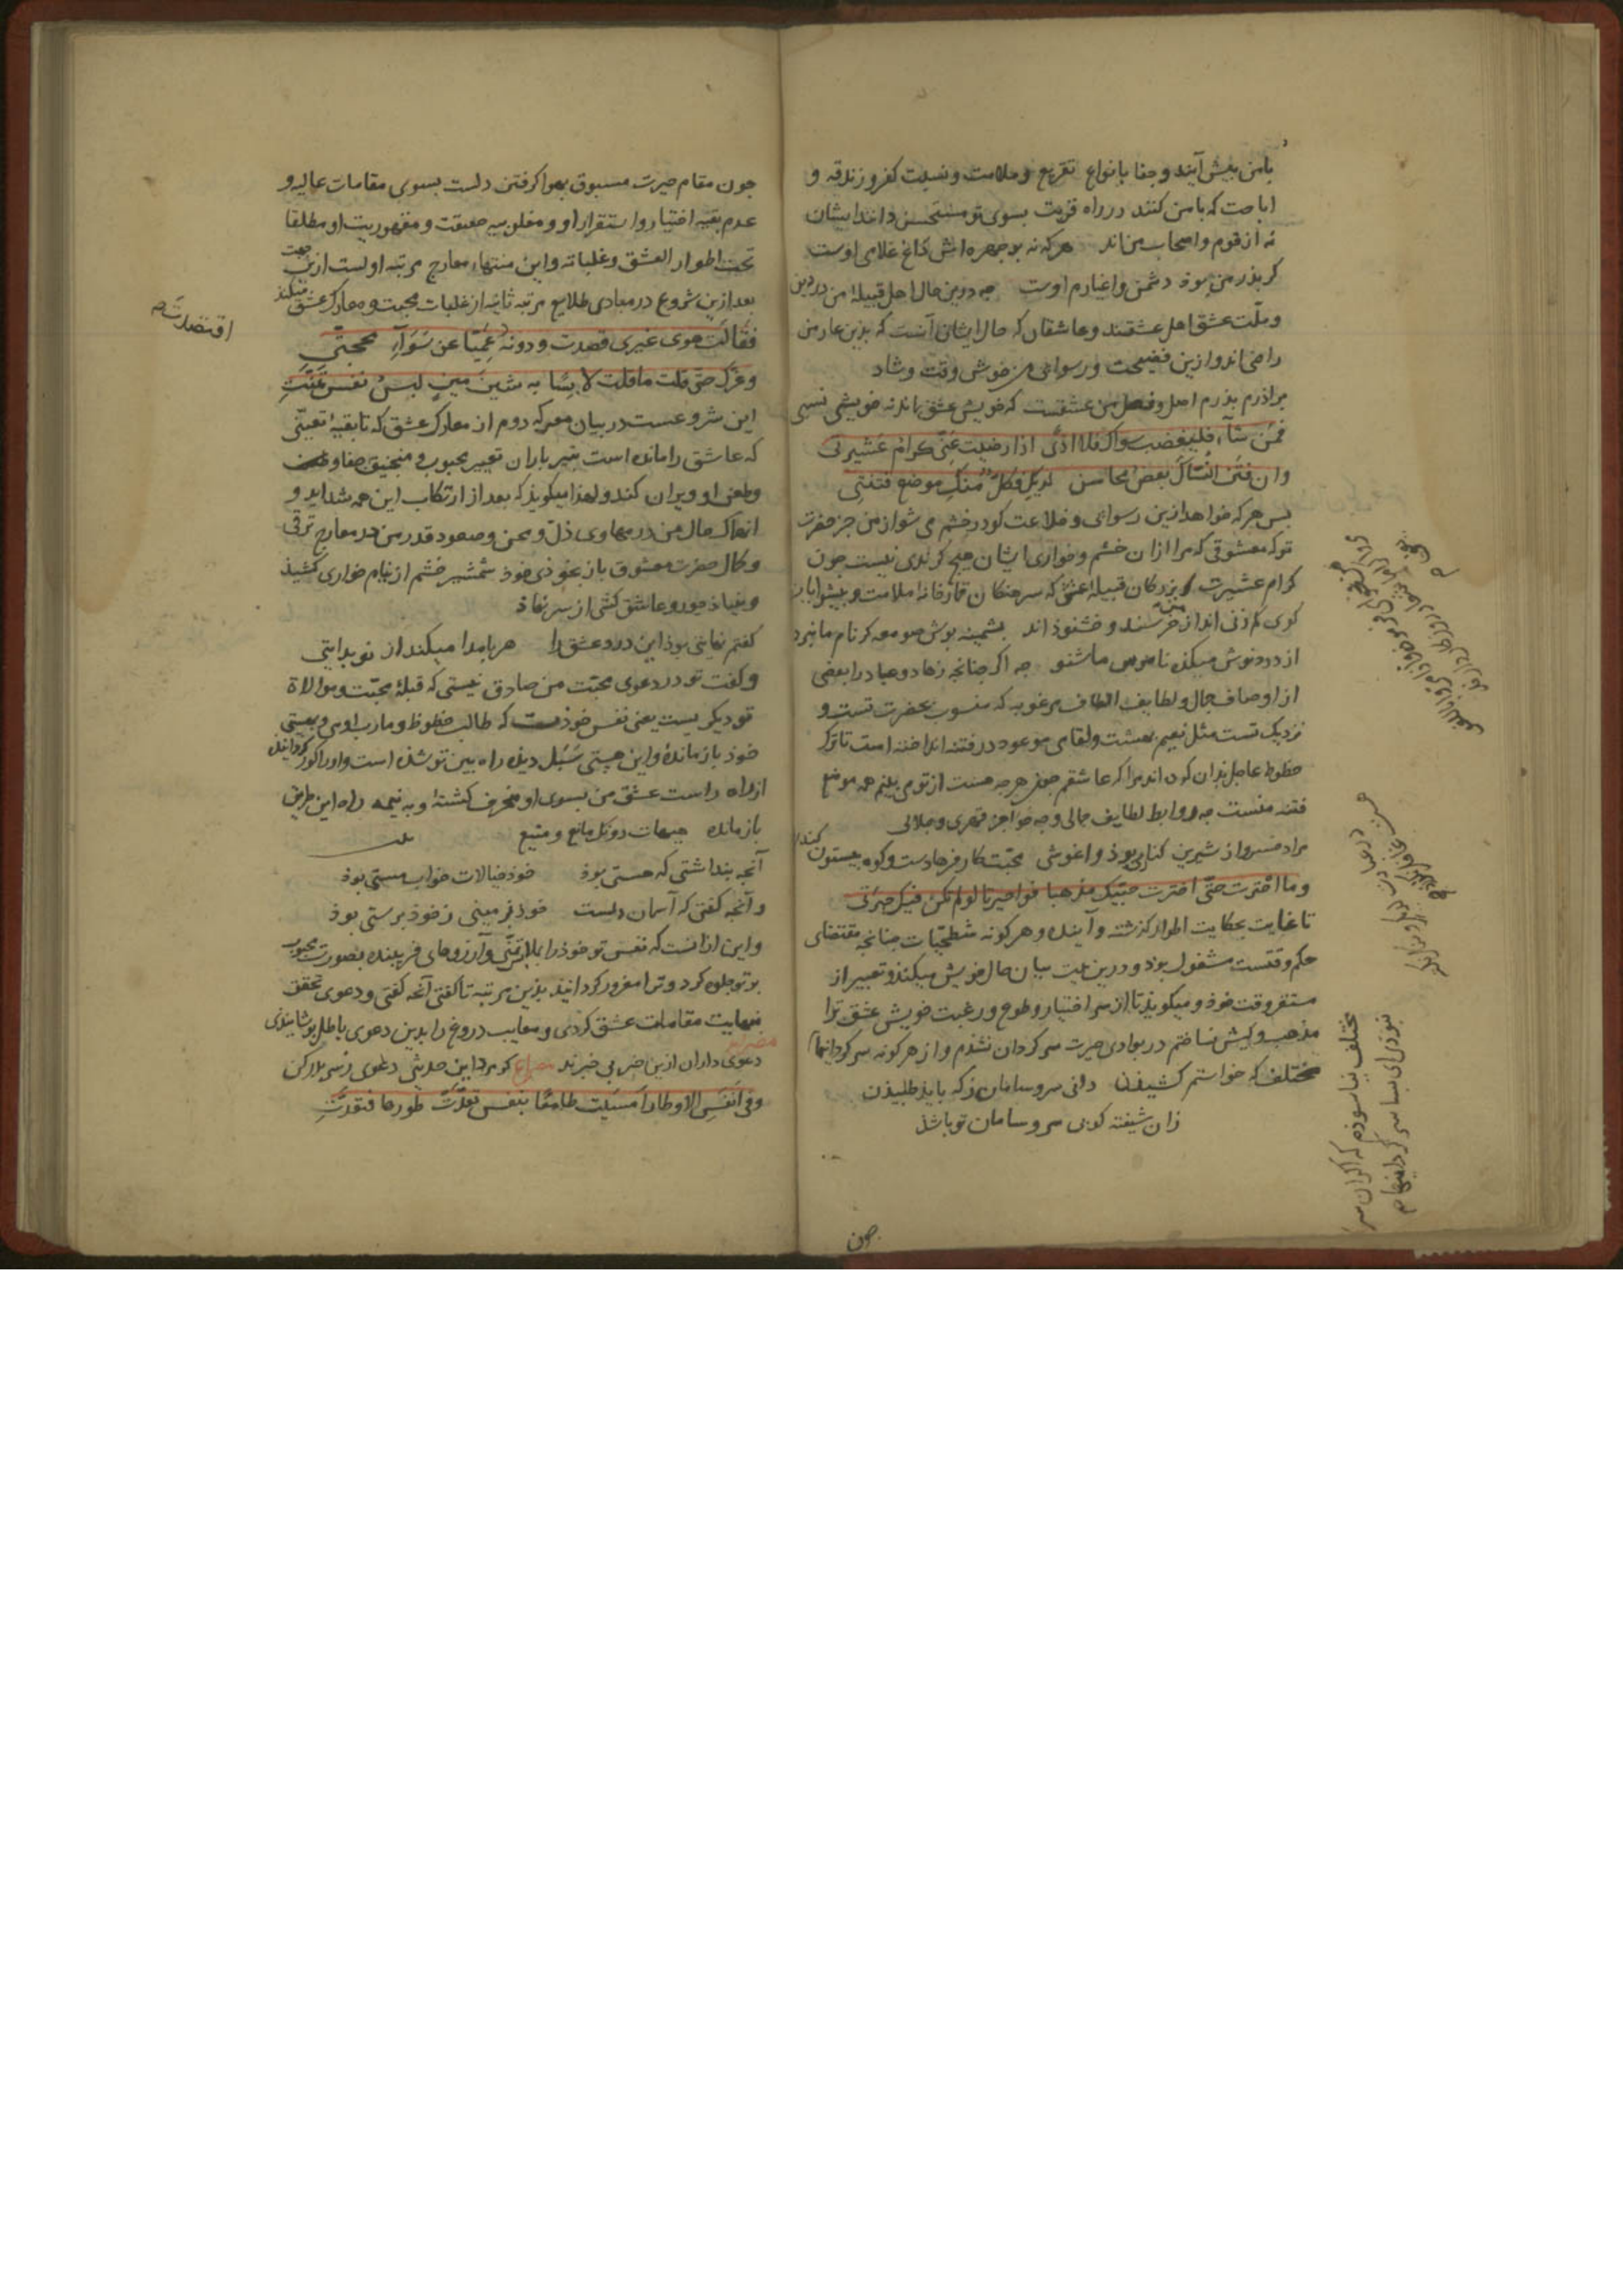 با من پیش آیند و جفا بانواع تقریع و ملامت و نسبت کفر و زندقه و
اباحت که با من کنند در راه قربت بسوی تو مستحسن دانند ایشان
نه از قوم و اصحاب من اند هر که نه بر چهره اش داغ غلامی اوست
کر بذر من بوذ دشمن و اغیارم اوست جه درین حال اهل قبیلهٔ من در دین
و ملّت عشق اهل عشقند و عاشقان که حال ایشان آنست که بذین عار من
راضی اند و ازین فضیحت و رسوائی من خوش وقت و شاد
براذرم بذرم اصل و فصل من عشقست که خویش عشق باند نه خویشی نسبی
فمن شآء فلیغضب سواک فلا اذًی اذا رضیت عنّی کرام عشیرتی
وان فتن النسّاک بعض محاسن لدیک فکلٌّ منک موضع فتنتی
بس هر که خواهد ازین رسوائی و خلاعت کو در خشم می شو از من جز حضرت
تو که معشوقی که مرا از ان خشم و خواری ایشان هیچ کزندی نیست جون
کرام عشیرت و بزرکان قبیلهٔ عشق که سرهنکان قمارخانهٔ ملامت و بیشوایان
کوی کم زنی اند از من خرسند و خشنوذ اند بشمینه بوش صومعه کر نام ما نبرد
از درد نوش میکده ناموس ما شنو جه اکر جنانجه زهاد و عباد را بعضی
از اوصاف جمال و لطایف الطاف مرغوبه که منسوب بحضرت تست و
نزدیک تست مثل نعیم بهشت و لقای موعود در فتنه انداخته است تا ترک
حظوظ عاجل بدان کرده اند مرا که عاشقم جمله هر جه هست از تو می بینم همه موضع
فتنه منست جه روابط لطایف جمالی و جه قهری و جلالی
مراد خسرو از شیرین کناری بوذ و اغوشی محبّت کار فرهادست و کوه بیستون کندن
وما احترت حتّی اخترت حبّیک مذهبا فواحیرتا لو لم تکن فیک حیرتی
تا غایت بحکایت اطوار کذشته و آینده و هر کونه شطحیّات جنانجه مقتضای
حکم وقتست مشغول بوذ و درین بیت بیان حال خویش میکند و تعبیر از
مستقر وقت خوذ و میکویذ تا از سر اختیار و طوع و رغبت خویش عشق ترا
مذهب و کیش نساختم در بوادی حیرت سرکردان نشذم و از هر کونه سرکردانیها
مختلف که خواستم کشیذن دانی سر و سامان ز که بایذ طلبیذن
زان شیفته کو بی سر و سامان تو باشذ
مختلف نیاسوذم که اکر ان سر
نبوذی ای بسا سرکردانیها
جون
جون مقام حیرت مسبوق بهوا کرفتن دلست بسوی مقامات عالیه و
عدم بقیه اختیار و استقرار او و مغلوبیه حقیقت و مقهوریت او مطلقا
تحت اطوار العشق و غلباته و این منتهاء معارج مرتبه اولست ازین جهت
بعد ازین شروع در مبادی طلایع مرتبه ثانیه از غلبات محبت و معارک عشق میکند
فقالت هوی غیری قصدت و دونه عمیّا عن سوآء محجتی
اقتصدت
وغرّک حتی قلت ما قلت لابسًا به شین مین لبس نفس تمنّت
این شروعست در بیان معرکه دوم از معارک عشق که تا بقیهٔ تعینی
که عاشق را مانده است بتیر باران تعییر محبوب و منجنیق جفا و
وطعن او ویران کند و لهذا میکویذ که بعد از ارتکاب این همه شداید و
انهماک حال من در مهاوی ذلّ و محن و صعود قدر من در معارج ترقی
و کمال حضرت معشوق باز شمشیر خشم از نیام خواری کشیذ
و بنیاذ جور و عاشق کشی از سر نهاذ
کفتم نهایتی بوذ این درد عشق را هر بامداد میکند از نو بدایتی
و کفت تو در دعوی محبّت من صادق نیستی که قبلهٔ محبّت و موالاة
تو دیکریست یعنی نفس خوذت که طالب حظوظ و مارب اوی و بهستی
خوذ باز مانده و این هستی سَبَل دیذهٔ راه بین تو شذه است و او را کور کردانیذه
از راه راست عشق من بسوی او منحرف کشته و به نیمه راه این طریق
باز مانده هیهات دونک مانع و منیع
آنجه بنداشتی که هستی بوذ خوذ خیالات خواب مستی بوذ
و آنجه کفتی که آسمان دلست خوذ زمینی ز خوذ برستی بوذ
و این از انست که نفس تو خوذ را بلباس تمنّی و آرزوهای فریبنده بصورت محبوب
بر تو جلوه کرد و ترا مغرور کردانید بذین مرتبه تا کفتی آنجه کفتی و دعوی تحقق
بنهایت مقامات عشق کردی و معایب دروغ را بدین دعوی باطل بوشانیدی
دعوی داران ازین خبر بی خبرند مصراع کر مرد این حدیثی دعوی ز سر بدر کن
وفی انفس الاوطار امسیت طامعًا بنفس تعدّت طورها فتعدّت